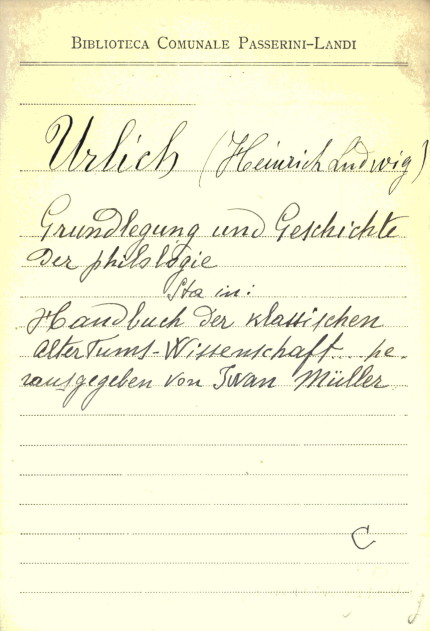 BIBLIOTECA COMUNALE PASSERINI-LANDI
Urlich (Heinrich Ludwig)
Grundlegung und Geschichte
der philologie
Sta in:
Handbuch der klassischen
altertums-Wissenschaft... he-
rausgegeben von Iwan Müller
C